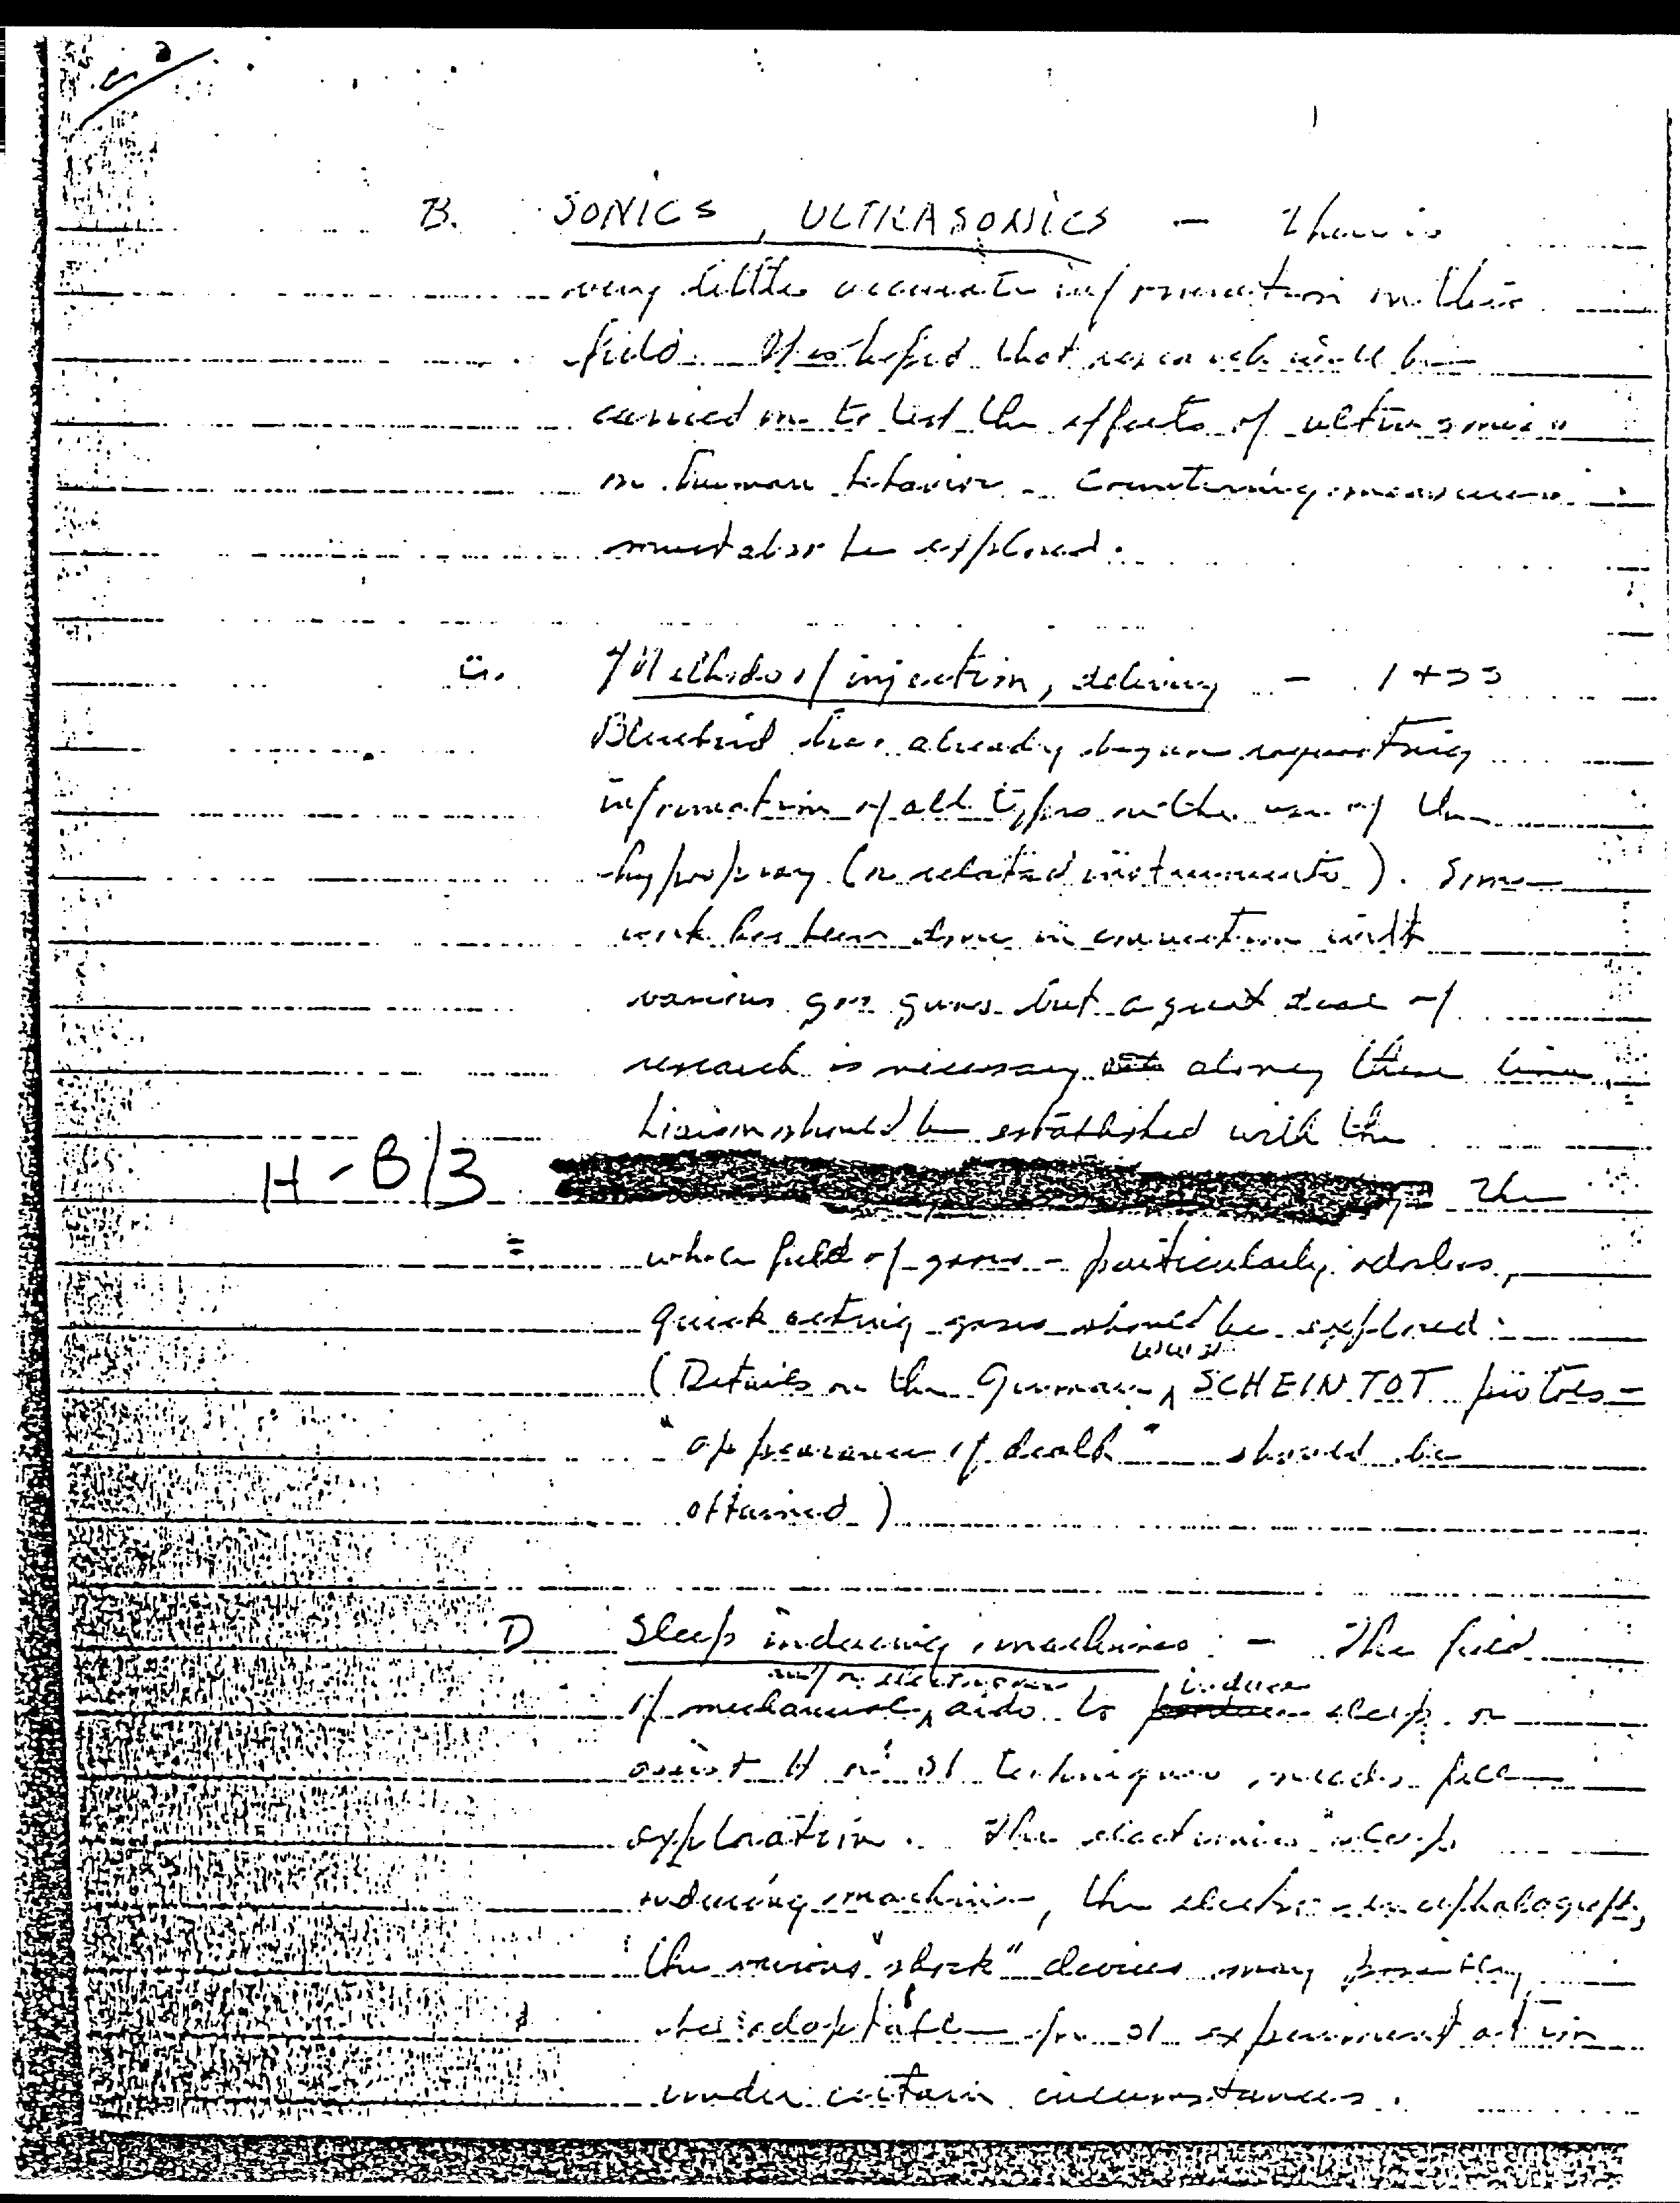 B. SONICS, ULTRASONICS - There is
very little accurate information in this
field. It is hoped that research will be
carried on to test the effects of ultrasonics
on human behavior. Countering measures
must also be explored.
C. Methods of injection, delivery -
Bluebird has already begun requesting
information of all types on the use of the
hypospray (or related instruments). Some
work has been done in connection with
various gas guns but a great deal of
research is necessary along these lines.
Liaison should be established with the
H-B/3 The
whole field of gases - particularly, odorless,
quick acting gases should be explored.
(Details on the German WW II SCHEINTOT pistols -
"appearance of death" should be
obtained)
D Sleep inducing machines - The field
of mechanical and/or electronic aids to induce sleep or
assist H or SI techniques needs full
exploration. The electronic "sleep
inducing machine, the electro-encephalograph,
the various "shock" devices may possibly
be adaptable for SI experimentation
under certain circumstances.